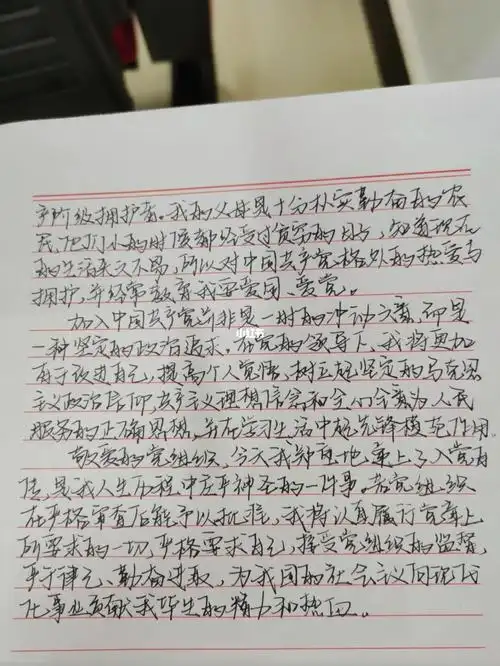 产阶级拥护者。我的父母是十分朴实勤奋的农
民,他们小的时候都经受过贫穷的日子,知道现在
的生活来之不易,所以对中国共产党格外的热爱与
拥护,并经常教育我要爱国、爱党。
加入中国共产党并非是一时的冲动之意,而是
一种坚定的政治追求。在党的领导下,我将更加
有于改进自己,提高个人觉悟,树立好坚定的马克思
主义政治信仰,共产主义理想信念和全心全意为人民
服务的正确思想,并在学习生活中起先锋模范作用。
敬爱的党组织,今天我郑重地递上了入党申
请,是我人生历程中庄严神圣的一件事。若党组织
在严格审查后能予以批准,我将认真履行党章上
所要求的一切,严格要求自己,接受党组织的监督,
严于律己、勤奋进取,为我国的社会主义现代
化事业贡献我毕生的精力和热血。
小红书